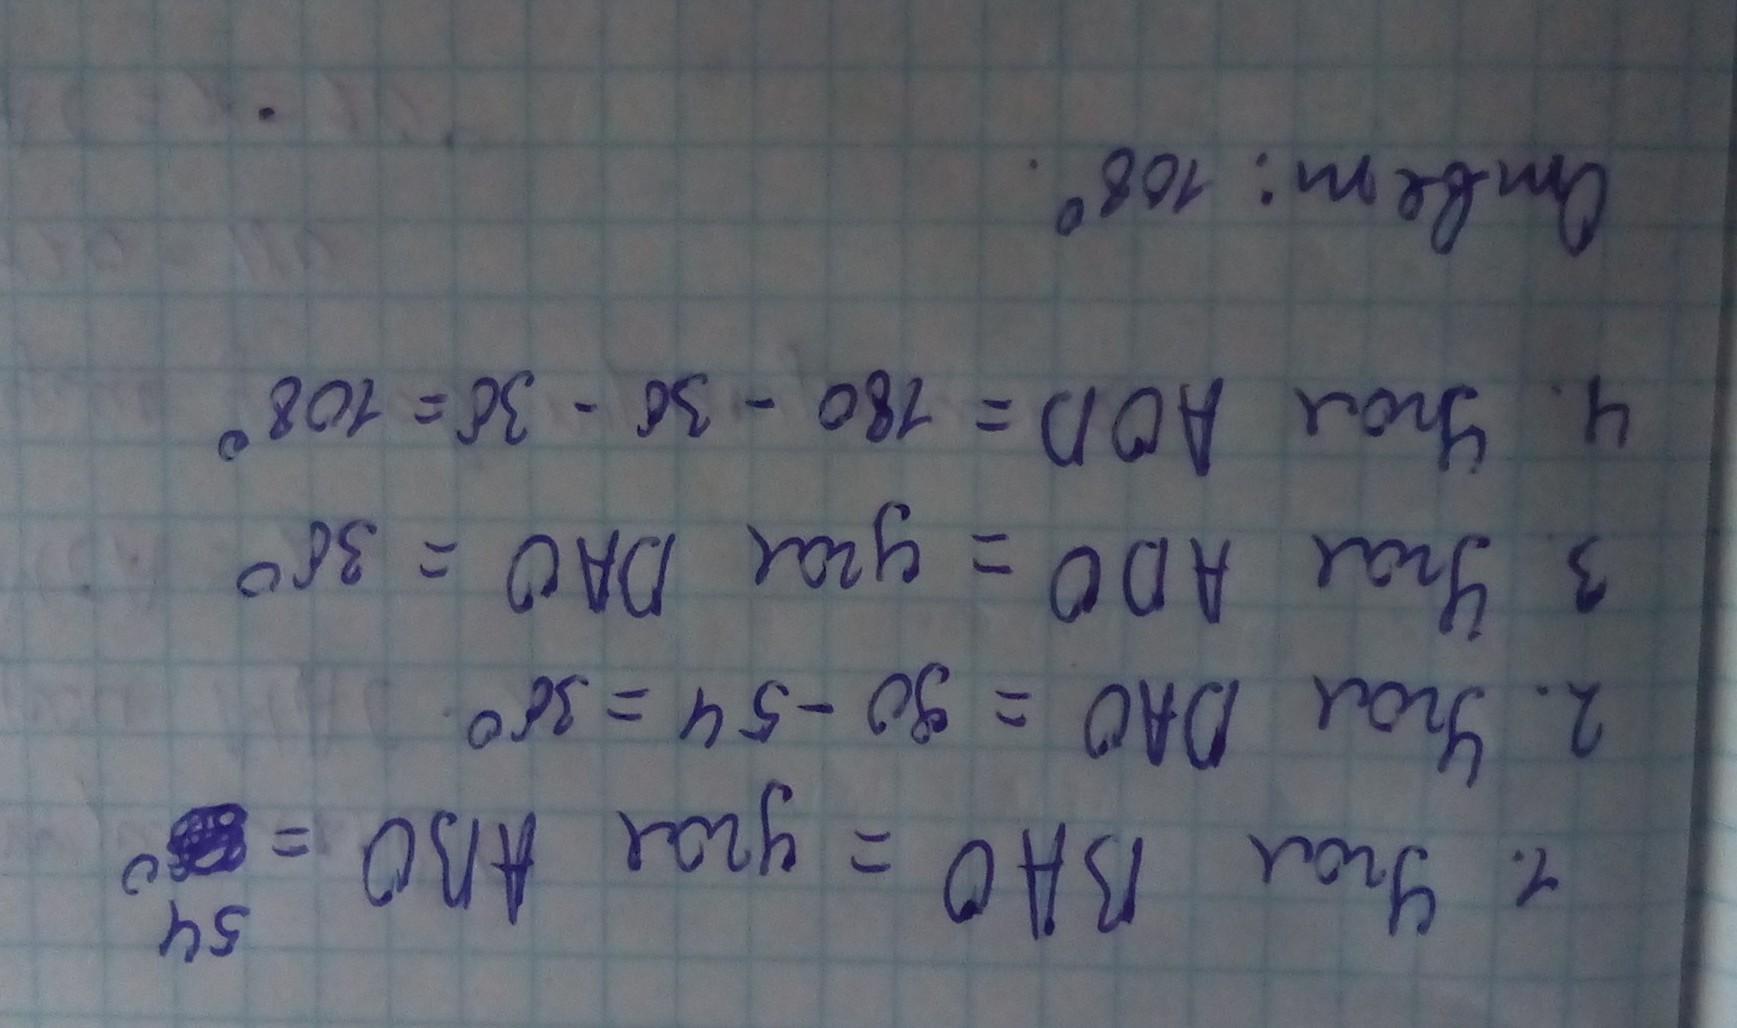 1. Угол BAO = угол ABO = 54°
2. Угол DAO = 90 - 54 = 36°
3 Угол ADO = угол DAO = 36°
4. Угол AOD = 180 - 36 - 36 = 108°
Ответ: 108°.